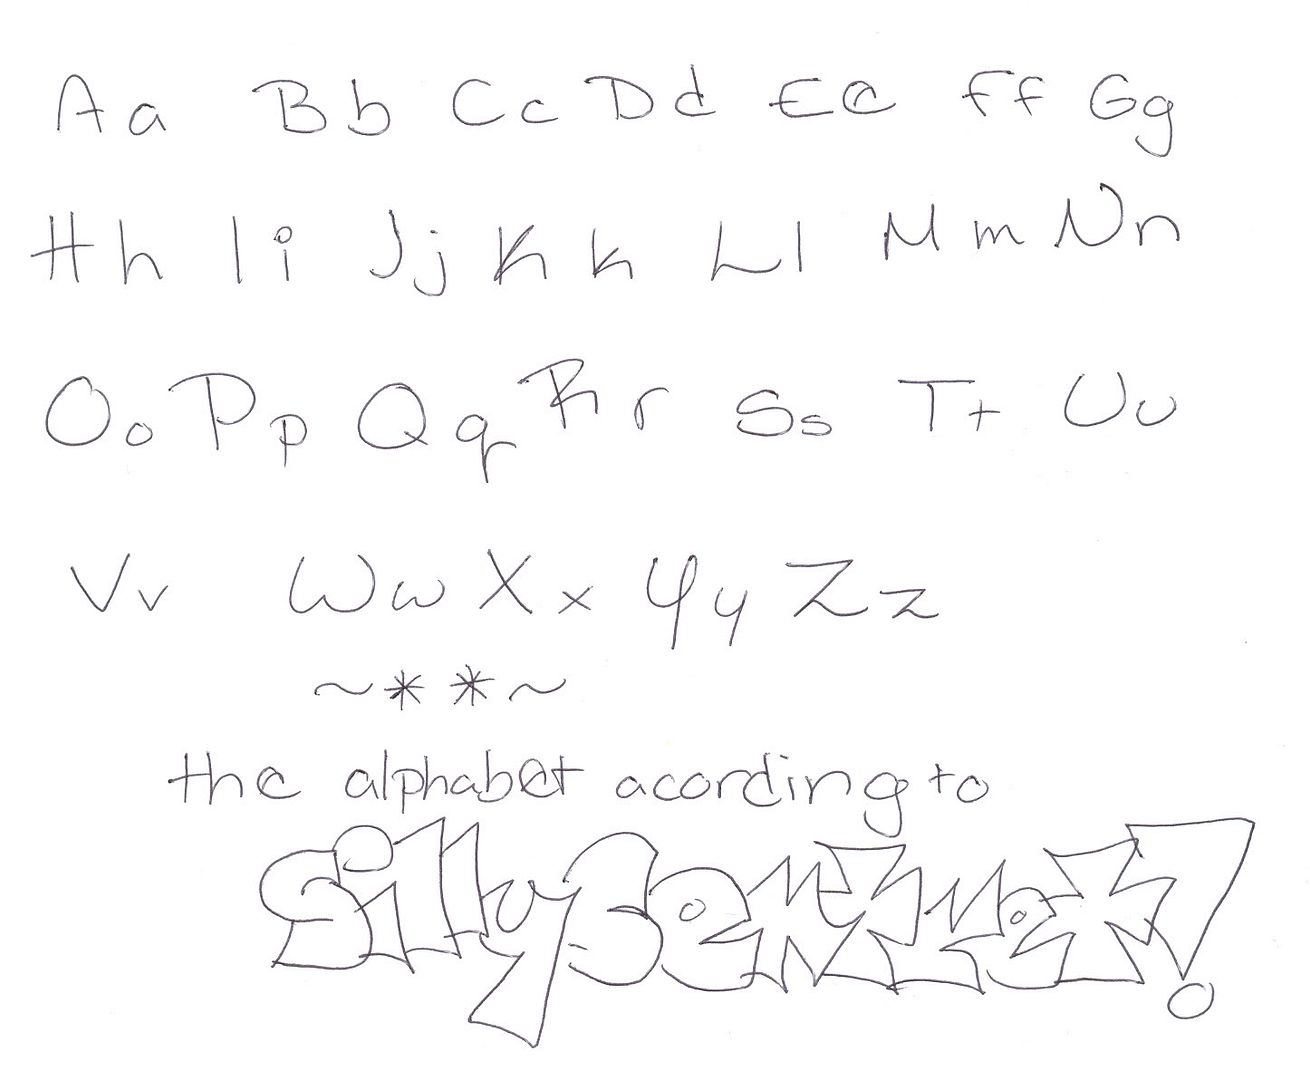 Aa Bb Cc Dd Ee Ff Gg
Hh Ii Jj Kk Ll Mm Nn
Oo Pp Qq Rr Ss Tt Uu
Vv Ww Xx Yy Zz
~* *~
the alphabet acording to